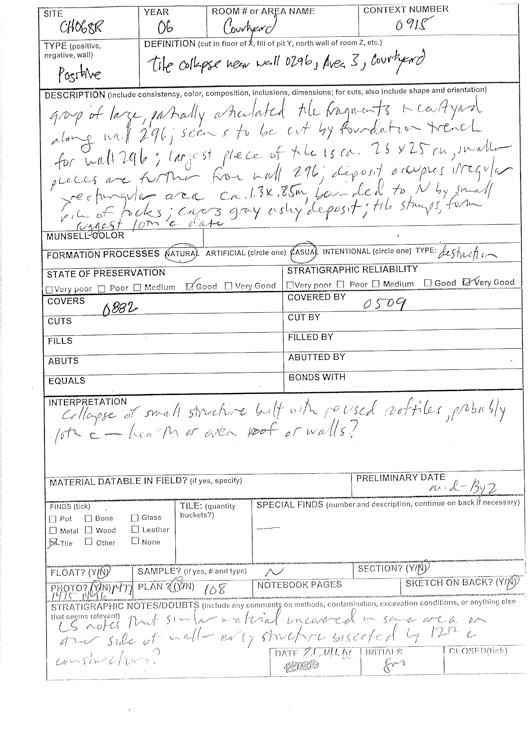 SITE YEAR ROOM # or AREA NAME CONTEXT NUMBER
CH06SR 06 Courtyard 0915
TYPE (positive, negative, wall) DEFINITION (cut in floor of X, fill of pit Y, north wall of room Z, etc.)
Positive tile collapse near wall 0296, Area 3, Courtyard
DESCRIPTION (include consistency, color, composition, inclusions, dimensions; for cuts, also include shape and orientation)
group of large, partially articulated tile fragments in courtyard
along wall 296; seems to be cut by foundation trench
for wall 296; largest piece of tile is ca. 25 x 25 cm, smaller
pieces are further from wall 296; deposit occupies irregular
rectangular area ca. 1.3 x .85m, bounded to N by small
pile of rocks; covers gray ashy deposit; tile stamps, form
suggest 10th c date
MUNSELL COLOR
FORMATION PROCESSES NATURAL ARTIFICIAL (circle one) CASUAL INTENTIONAL (circle one) TYPE: destruction
STATE OF PRESERVATION STRATIGRAPHIC RELIABILITY
Very poor Poor Medium Good Very Good Very poor Poor Medium Good Very Good
COVERS 0882 COVERED BY 0509
CUTS CUT BY
FILLS FILLED BY
ABUTS ABUTTED BY
EQUALS BONDS WITH
INTERPRETATION
Collapse of small structure built with reused rooftiles, probably
10th c — hearth or oven roof or walls?
MATERIAL DATABLE IN FIELD? (if yes, specify) PRELIMINARY DATE
mid-Byz
FINDS (tick) TILE: (quantity buckets?) SPECIAL FINDS (number and description, continue on back if necessary)
Pot Bone Glass
Metal Wood Leather
Tile Other None
FLOAT? (Y/N) SAMPLE? (if yes, # and type) N SECTION? (Y/N)
PHOTO? (Y/N) 1477 PLAN? (Y/N) 108 NOTEBOOK PAGES SKETCH ON BACK? (Y/N)
STRATIGRAPHIC NOTES/DOUBTS (include any comments on methods, contamination, excavation conditions, or anything else
that seems relevant)
LS notes that similar material uncovered in same area on
other side of wall - early structure bisected by 12th c
construction?
DATE INITIALS CLOSED(tick)